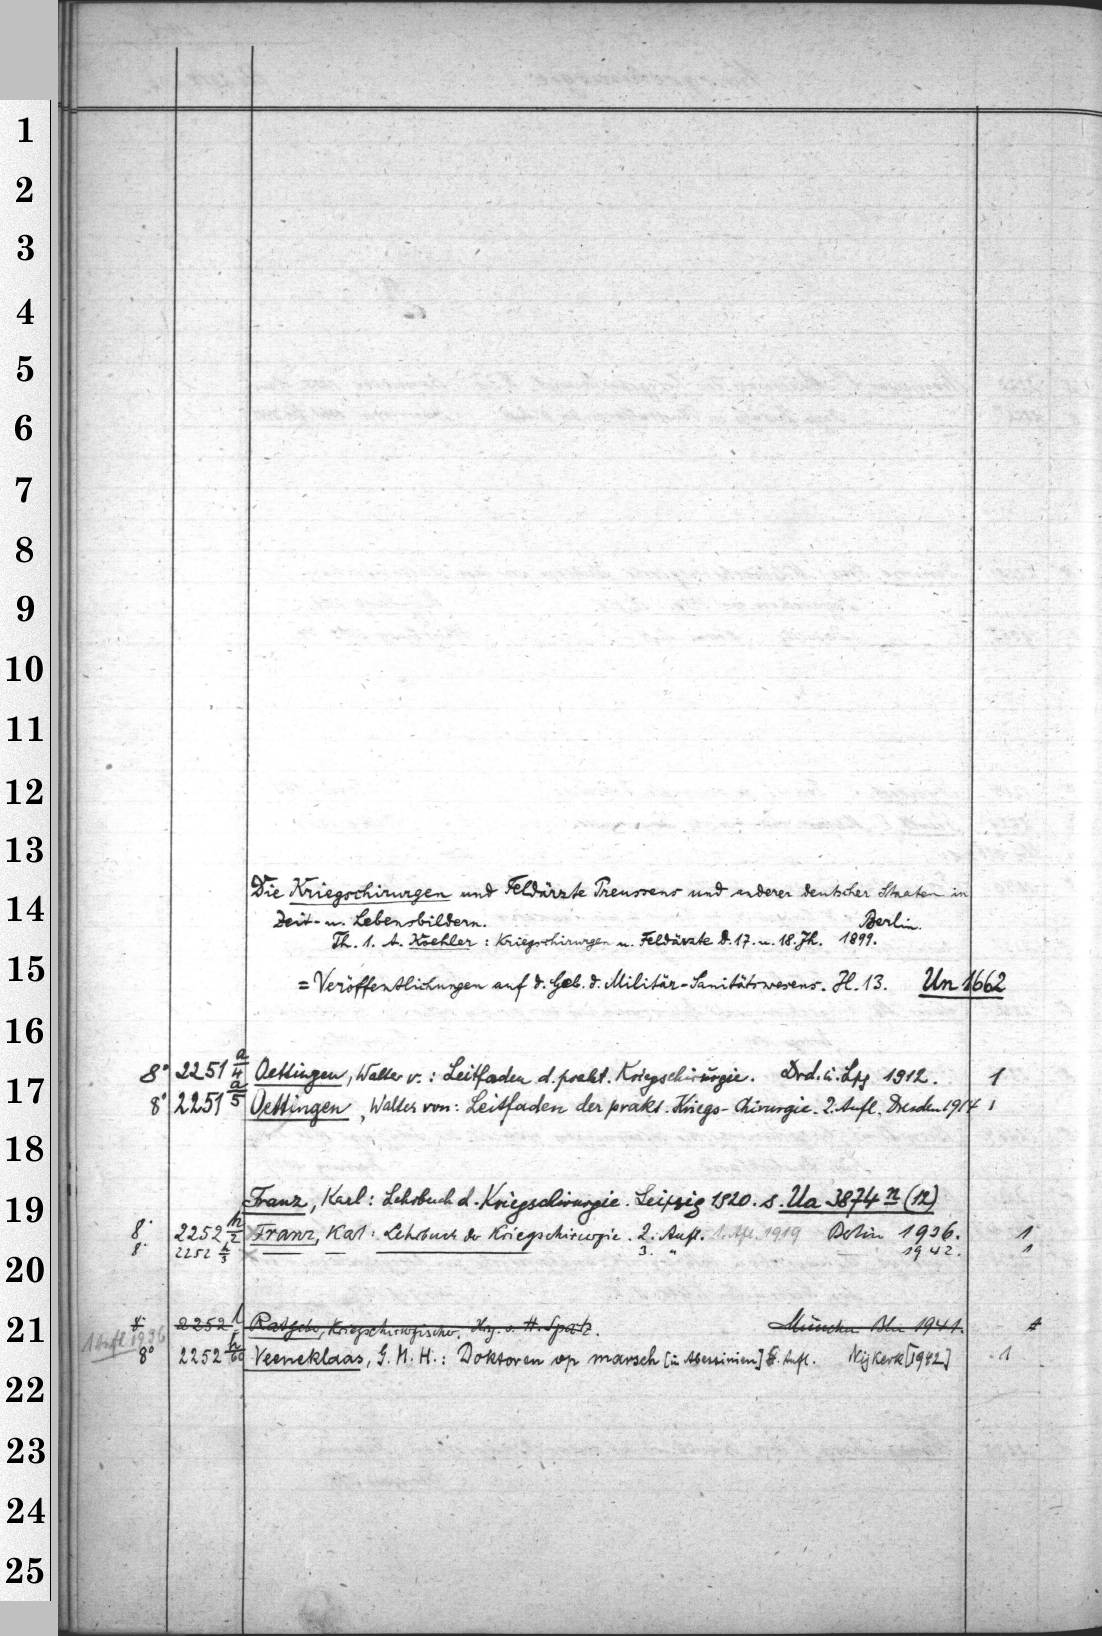 1
2
3
4
5
6
7
8
9
10
11
12
13
14
15
16
17
18
19
20
21
22
23
24
25
Die Kriegschirurgen und Feldärzte Preussens und anderer deutscher Staaten in
Zeit- u. Lebensbildern. Berlin.
Th. 1. A. Koehler : Kriegschirurgen u. Feldärzte d. 17. u. 18. Jh. 1899.
= Veröffentlichungen auf d. Geb. d. Militär-Sanitätswesens. H. 13. Un 1662
8° 2251 a/4 Oettingen, Walter v. : Leitfaden d. prakt. Kriegschirurgie. Drd. u. Lpg 1912. 1
8° 2251 a/5 Oettingen, Walter von: Leitfaden der prakt. Kriegs-Chirurgie. 2. Aufl. Dresden 1914 1
Franz, Karl: Lehrbuch d. Kriegschirurgie. Leipzig 1920. s. Ua 3874 n (12)
8° 2252 h/2 Franz, Karl: Lehrbuch der Kriegschirurgie. 2. Aufl. 1. Afl. 1919 Berlin 1936. 1
8° 2252 h/3 3. " 1942. 1
2252 Ratgeber, Kriegschirurgischer. Hrg. v. H. Spatz. München Bln 1941.
1 Aufl 1936
8° 2252 h/60 Veeneklaas, G. M. H.: Doktoren op marsch [in Abessinien] Aufl. Nijkerk [1942] 1